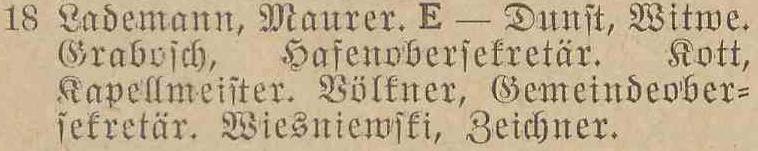 18 Lademann, Maurer. E — Dunst, Witwe.
Grabosch, Hafenobersekretär. Kott,
Kapellmeister. Völkner, Gemeindeober-
sekretär. Wiesniewski, Zeichner.